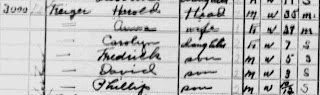 3000 Keiger Harold Head M W 35 M
— Anna wife F W 34 M
— Carolyn daughter F W 7 S
— Fredrick son M W 5 S
— David son M W 3 S
— Phillip son M W S